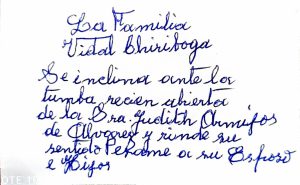 La Familia
Vidal Chiriboga
Se inclina ante la
tumba recien abierta
de la Sra. Judith Armijos
de Alvarez y rinde su
sentido Pesame a su Esposo
e Hijos